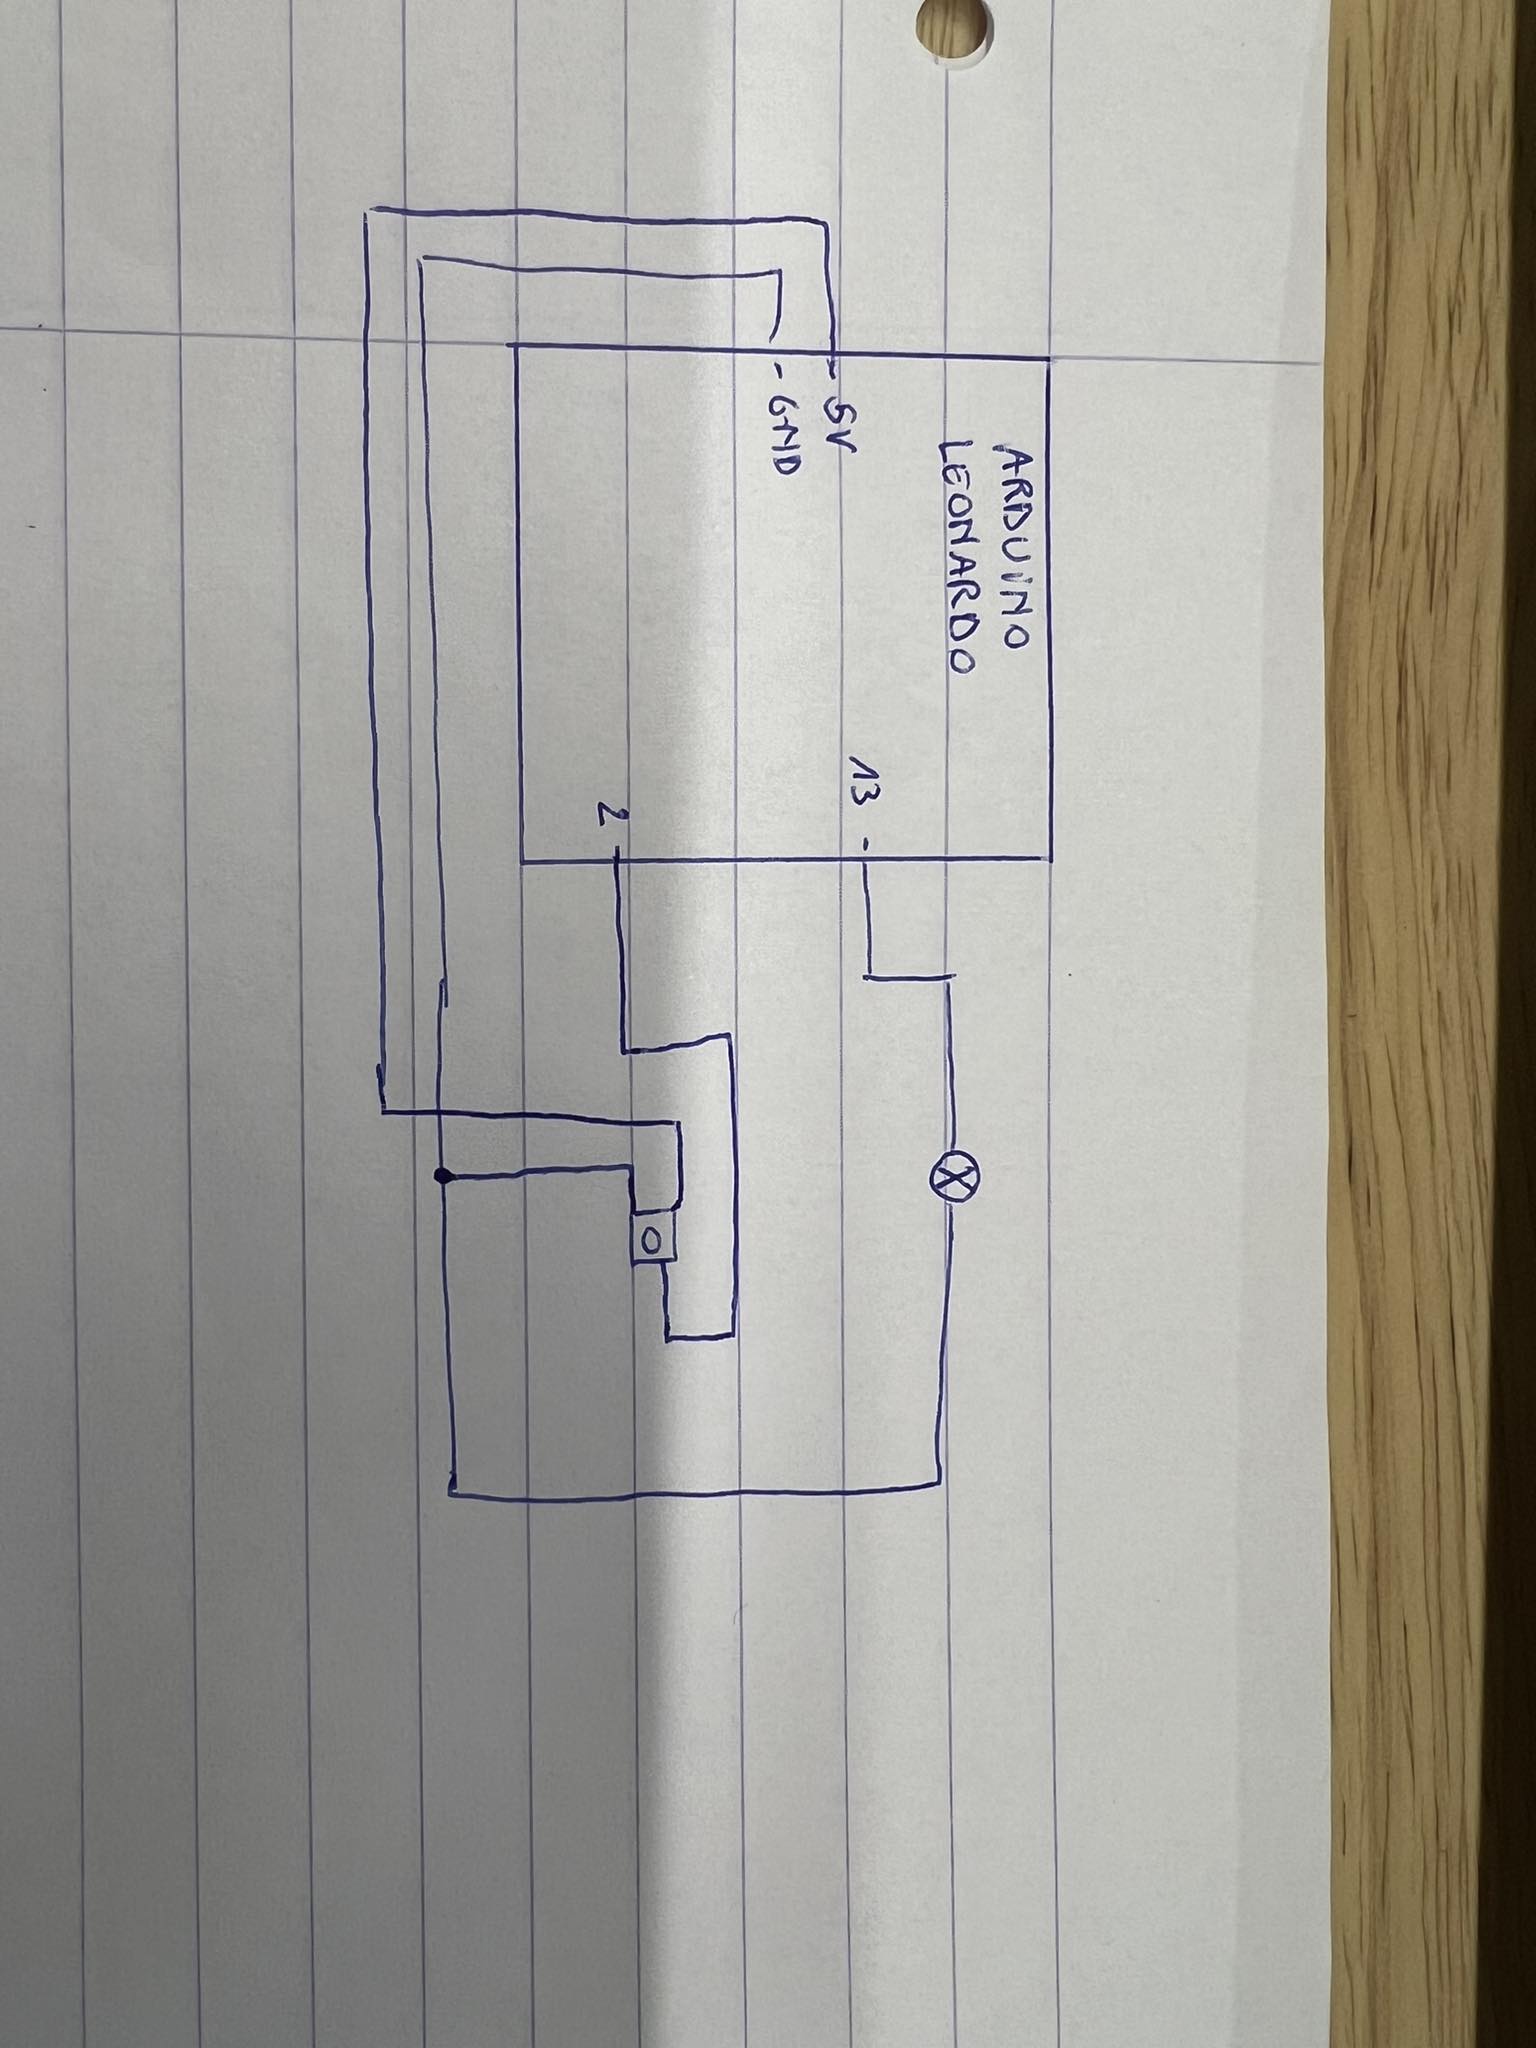 ARDUINO
LEONARDO
5V
GND
13
2